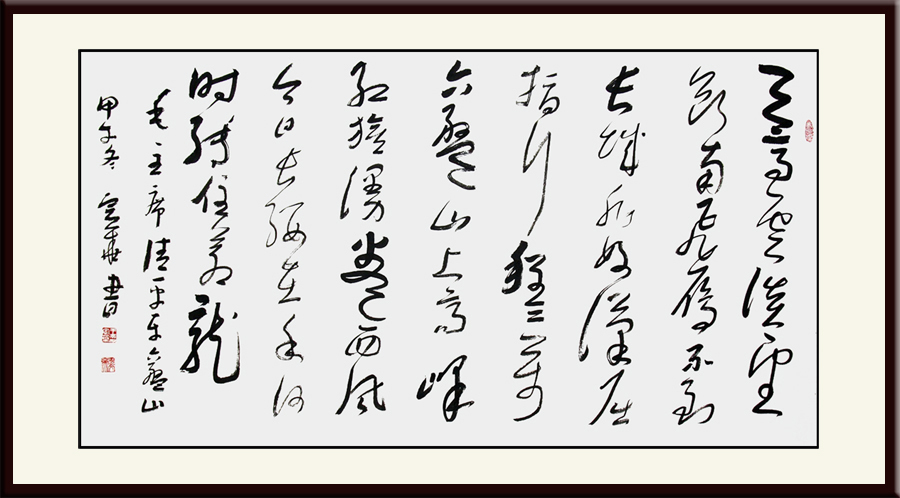 天高云淡望
断南飞雁不到
长城非好汉屈
指行程二万
六盘山上高峰
红旗漫卷西风
今日长缨在手何
时缚住苍龙
毛主席清平乐六盘山
甲午冬 書